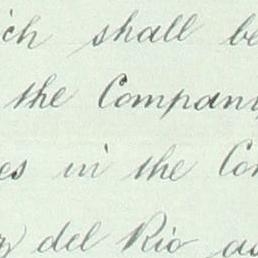 ich shall be
the Company
es in the Co
del Rio